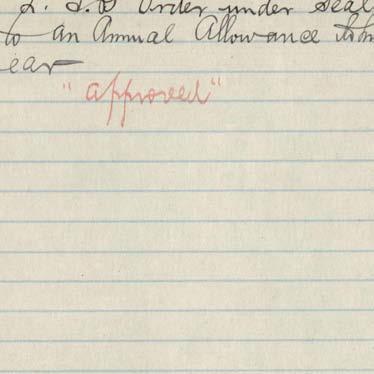 Order under Seal
to an Annual Allowance
ear
"approved"